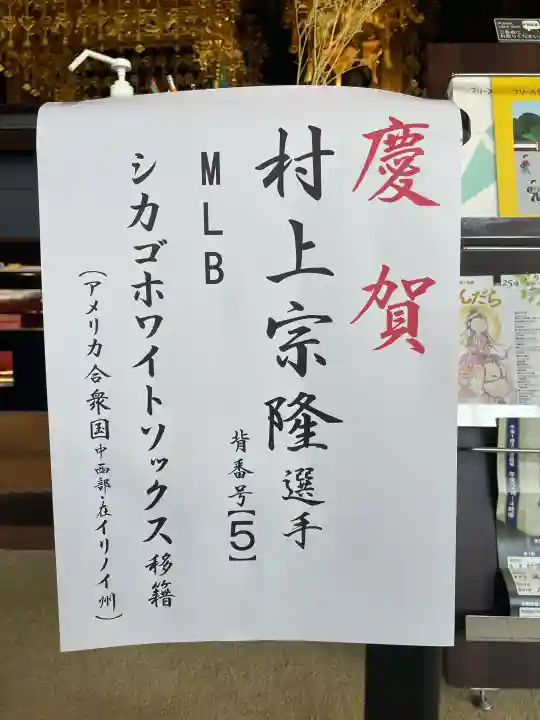 慶賀
村上宗隆選手
背番号【5】
MLB
シカゴホワイトソックス移籍
(アメリカ合衆国中西部・在イリノイ州)
んだら
254